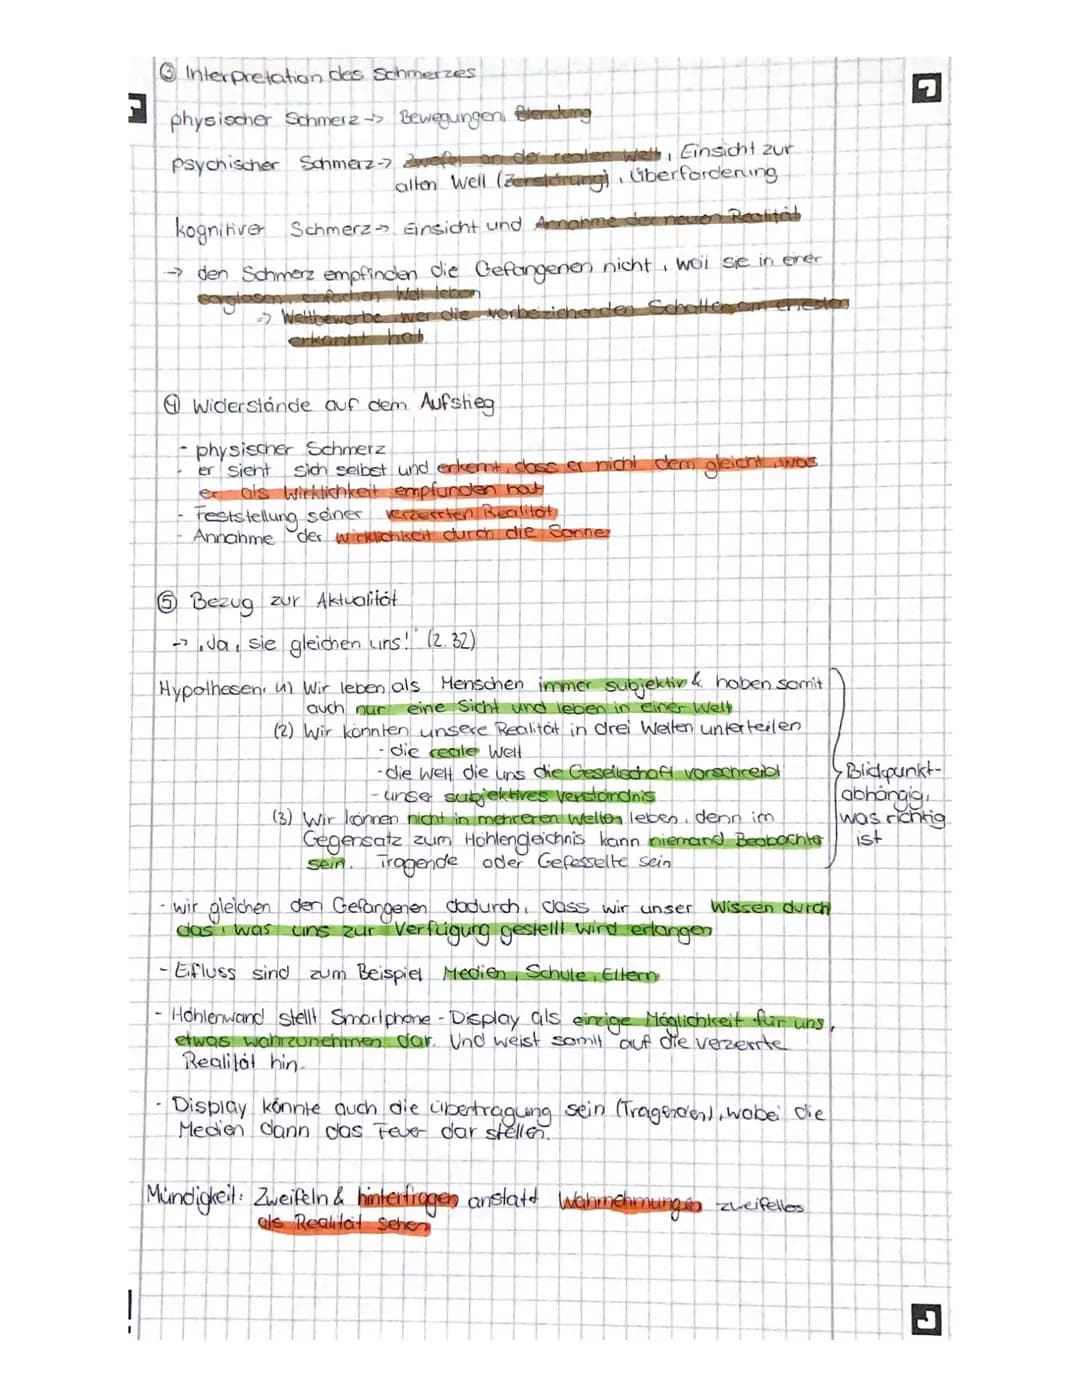 ③ Interpretation des Schmerzes
physischer Schmerz -> Bewegungen, Blendung
psychischer Schmerz -> Zweifel an der realen Welt, Einsicht zur
alten Welt (Zerstörung), Überforderung
kognitiver Schmerz -> Einsicht und Annahme der neuen Realität
-> den Schmerz empfinden die Gefangenen nicht, weil sie in einer
sorglosen, einfachen Welt leben
-> Wettbewerbe wer die vorbeziehenden Schatten am ehesten
erkannt hat
④ Widerstände auf dem Aufstieg
- physischer Schmerz
- er sieht sich selbst und erkennt, dass er nicht dem gleicht, was
er als Wirklichkeit empfunden hat
- Feststellung seiner verzerrten Realität
- Annahme der Wirklichkeit durch die Sonne
⑤ Bezug zur Aktualität
-> „Ja, sie gleichen uns!" (Z. 32)
Hypothesen: (1) Wir leben als Menschen immer subjektiv & haben somit
auch nur eine Sicht und leben in einer Welt
(2) Wir könnten unsere Realität in drei Welten unterteilen
- die reale Welt
- die Welt die uns die Gesellschaft vorschreibt
- unser subjektives Verständnis
(3) Wir können nicht in mehreren Welten leben, denn im
Gegensatz zum Höhlengleichnis kann niemand Beobachter
sein, Tragende oder Gefesselte sein
Blickpunkt-
abhängig,
was richtig
ist
- wir gleichen den Gefangenen dadurch, dass wir unser Wissen durch
das, was uns zur Verfügung gestellt wird erlangen
- Eifluss sind zum Beispiel Medien, Schule, Eltern
- Höhlenwand stellt Smartphone-Display als einzige Möglichkeit für uns,
etwas wahrzunehmen dar. Und weist somit auf die verzerrte
Realität hin.
- Display könnte auch die Übertragung sein (Tragenden), wobei die
Medien dann das Feuer dar stellen.
Mündigkeit: Zweifeln & hinterfragen anstatt Wahrnehmungen zweifellos
als Realität sehen